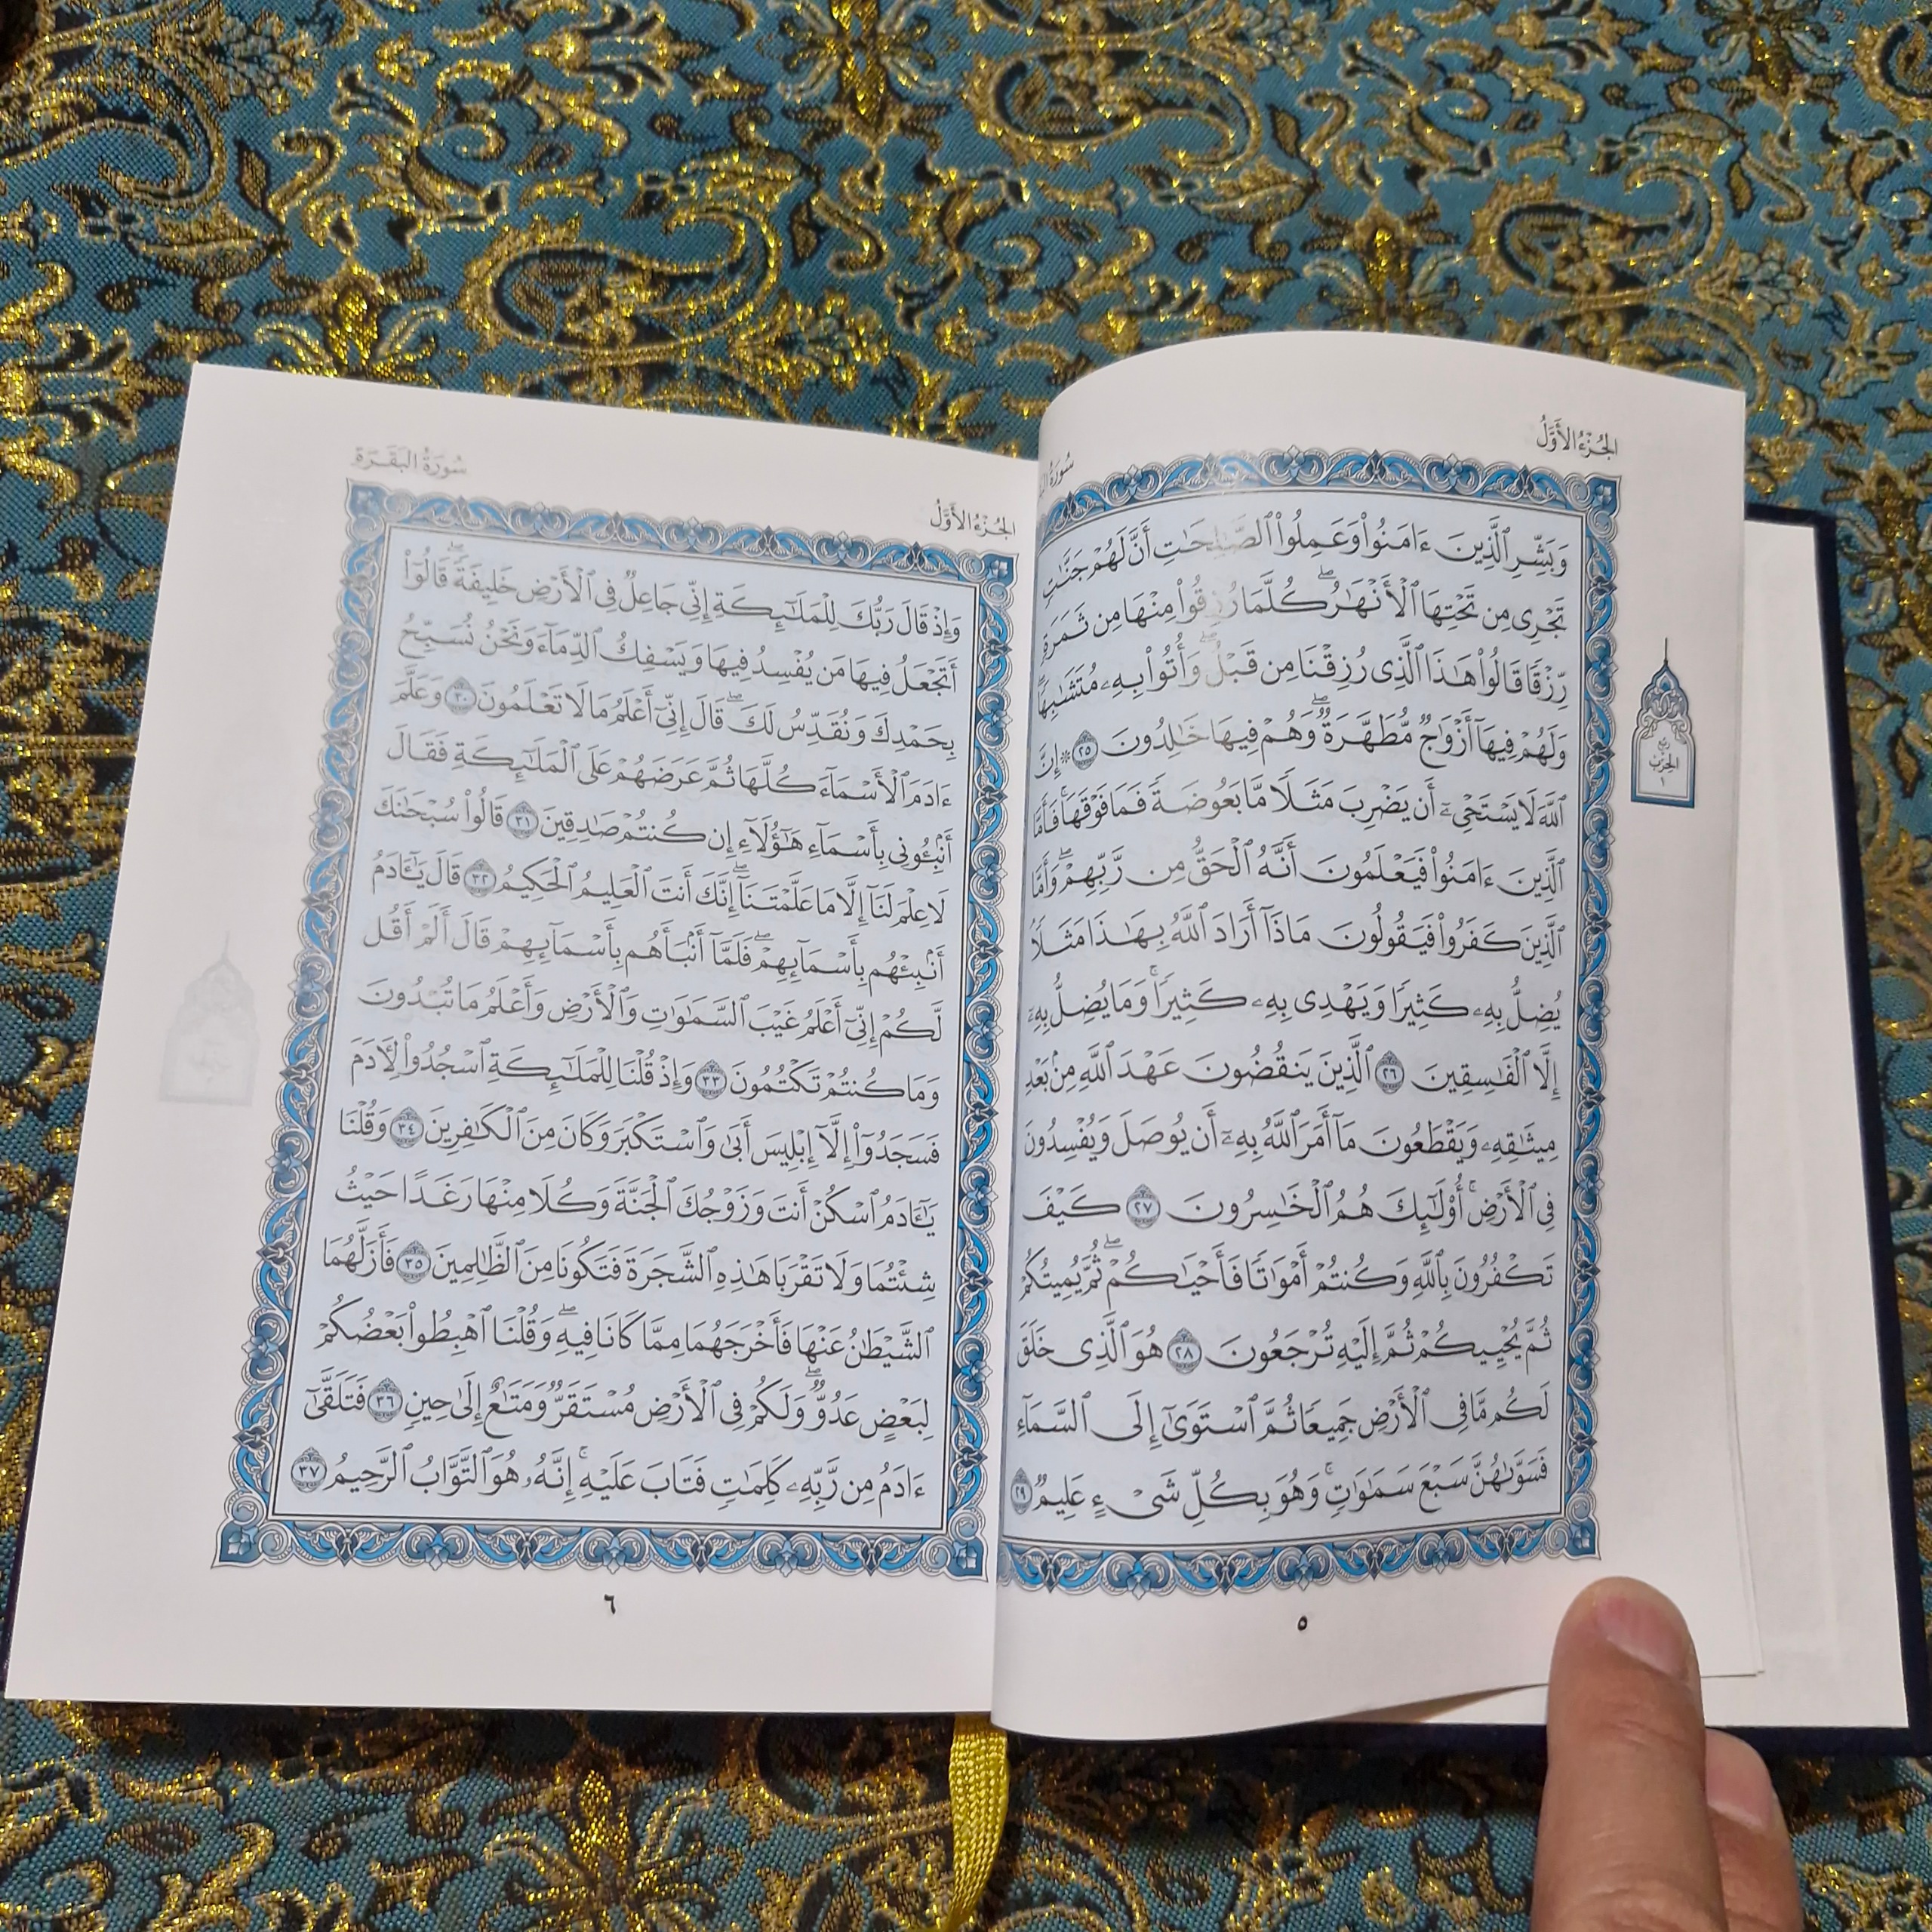 الجُزْءُ الأَوَّلُ
وَبَشِّرِ ٱلَّذِينَ ءَامَنُوا۟ وَعَمِلُوا۟ ٱلصَّٰلِحَٰتِ أَنَّ لَهُمْ جَنَّٰتٍ
تَجْرِى مِن تَحْتِهَا ٱلْأَنْهَٰرُ ۖ كُلَّمَا رُزِقُوا۟ مِنْهَا مِن ثَمَرَةٍ
رِّزْقًا قَالُوا۟ هَٰذَا ٱلَّذِى رُزِقْنَا مِن قَبْلُ ۖ وَأُتُوا۟ بِهِۦ مُتَشَٰبِهًا
وَلَهُمْ فِيهَآ أَزْوَٰجٌ مُّطَهَّرَةٌ ۖ وَهُمْ فِيهَا خَٰلِدُونَ ٢٥ ۞ إِنَّ
ٱللَّهَ لَا يَسْتَحْىِۦٓ أَن يَضْرِبَ مَثَلًا مَّا بَعُوضَةً فَمَا فَوْقَهَا ۚ فَأَمَّا
ٱلَّذِينَ ءَامَنُوا۟ فَيَعْلَمُونَ أَنَّهُ ٱلْحَقُّ مِن رَّبِّهِمْ ۖ وَأَمَّا
ٱلَّذِينَ كَفَرُوا۟ فَيَقُولُونَ مَاذَآ أَرَادَ ٱللَّهُ بِهَٰذَا مَثَلًا
يُضِلُّ بِهِۦ كَثِيرًا وَيَهْدِى بِهِۦ كَثِيرًا ۚ وَمَا يُضِلُّ بِهِۦٓ
إِلَّا ٱلْفَٰسِقِينَ ٢٦ ٱلَّذِينَ يَنقُضُونَ عَهْدَ ٱللَّهِ مِنۢ بَعْدِ
مِيثَٰقِهِۦ وَيَقْطَعُونَ مَآ أَمَرَ ٱللَّهُ بِهِۦٓ أَن يُوصَلَ وَيُفْسِدُونَ
فِى ٱلْأَرْضِ ۚ أُو۟لَٰٓئِكَ هُمُ ٱلْخَٰسِرُونَ ٢٧ كَيْفَ
تَكْفُرُونَ بِٱللَّهِ وَكُنتُمْ أَمْوَٰتًا فَأَحْيَٰكُمْ ۖ ثُمَّ يُمِيتُكُمْ
ثُمَّ يُحْيِيكُمْ ثُمَّ إِلَيْهِ تُرْجَعُونَ ٢٨ هُوَ ٱلَّذِى خَلَقَ
لَكُم مَّا فِى ٱلْأَرْضِ جَمِيعًا ثُمَّ ٱسْتَوَىٰٓ إِلَى ٱلسَّمَآءِ
فَسَوَّىٰهُنَّ سَبْعَ سَمَٰوَٰتٍ ۚ وَهُوَ بِكُلِّ شَىْءٍ عَلِيمٌ ٢٩
ربع
الحزب
١
٥
الجُزْءُ الأَوَّلُ
سُورَةُ البَقَرَة
وَإِذْ قَالَ رَبُّكَ لِلْمَلَٰٓئِكَةِ إِنِّى جَاعِلٌ فِى ٱلْأَرْضِ خَلِيفَةً ۖ قَالُوٓا۟
أَتَجْعَلُ فِيهَا مَن يُفْسِدُ فِيهَا وَيَسْفِكُ ٱلدِّمَآءَ وَنَحْنُ نُسَبِّحُ
بِحَمْدِكَ وَنُقَدِّسُ لَكَ ۖ قَالَ إِنِّىٓ أَعْلَمُ مَا لَا تَعْلَمُونَ ٣٠ وَعَلَّمَ
ءَادَمَ ٱلْأَسْمَآءَ كُلَّهَا ثُمَّ عَرَضَهُمْ عَلَى ٱلْمَلَٰٓئِكَةِ فَقَالَ
أَنۢبِـُٔونِى بِأَسْمَآءِ هَٰٓؤُلَآءِ إِن كُنتُمْ صَٰدِقِينَ ٣١ قَالُوا۟ سُبْحَٰنَكَ
لَا عِلْمَ لَنَآ إِلَّا مَا عَلَّمْتَنَآ ۖ إِنَّكَ أَنتَ ٱلْعَلِيمُ ٱلْحَكِيمُ ٣٢ قَالَ يَٰٓـَٔادَمُ
أَنۢبِئْهُم بِأَسْمَآئِهِمْ ۖ فَلَمَّآ أَنۢبَأَهُم بِأَسْمَآئِهِمْ قَالَ أَلَمْ أَقُل
لَّكُمْ إِنِّىٓ أَعْلَمُ غَيْبَ ٱلسَّمَٰوَٰتِ وَٱلْأَرْضِ وَأَعْلَمُ مَا تُبْدُونَ
وَمَا كُنتُمْ تَكْتُمُونَ ٣٣ وَإِذْ قُلْنَا لِلْمَلَٰٓئِكَةِ ٱسْجُدُوا۟ لِـَٔادَمَ
فَسَجَدُوٓا۟ إِلَّآ إِبْلِيسَ أَبَىٰ وَٱسْتَكْبَرَ وَكَانَ مِنَ ٱلْكَٰفِرِينَ ٣٤ وَقُلْنَا
يَٰٓـَٔادَمُ ٱسْكُنْ أَنتَ وَزَوْجُكَ ٱلْجَنَّةَ وَكُلَا مِنْهَا رَغَدًا حَيْثُ
شِئْتُمَا وَلَا تَقْرَبَا هَٰذِهِ ٱلشَّجَرَةَ فَتَكُونَا مِنَ ٱلظَّٰلِمِينَ ٣٥ فَأَزَلَّهُمَا
ٱلشَّيْطَٰنُ عَنْهَا فَأَخْرَجَهُمَا مِمَّا كَانَا فِيهِ ۖ وَقُلْنَا ٱهْبِطُوا۟ بَعْضُكُمْ
لِبَعْضٍ عَدُوٌّ ۖ وَلَكُمْ فِى ٱلْأَرْضِ مُسْتَقَرٌّ وَمَتَٰعٌ إِلَىٰ حِينٍ ٣٦ فَتَلَقَّىٰٓ
ءَادَمُ مِن رَّبِّهِۦ كَلِمَٰتٍ فَتَابَ عَلَيْهِ ۚ إِنَّهُۥ هُوَ ٱلتَّوَّابُ ٱلرَّحِيمُ ٣٧
٦